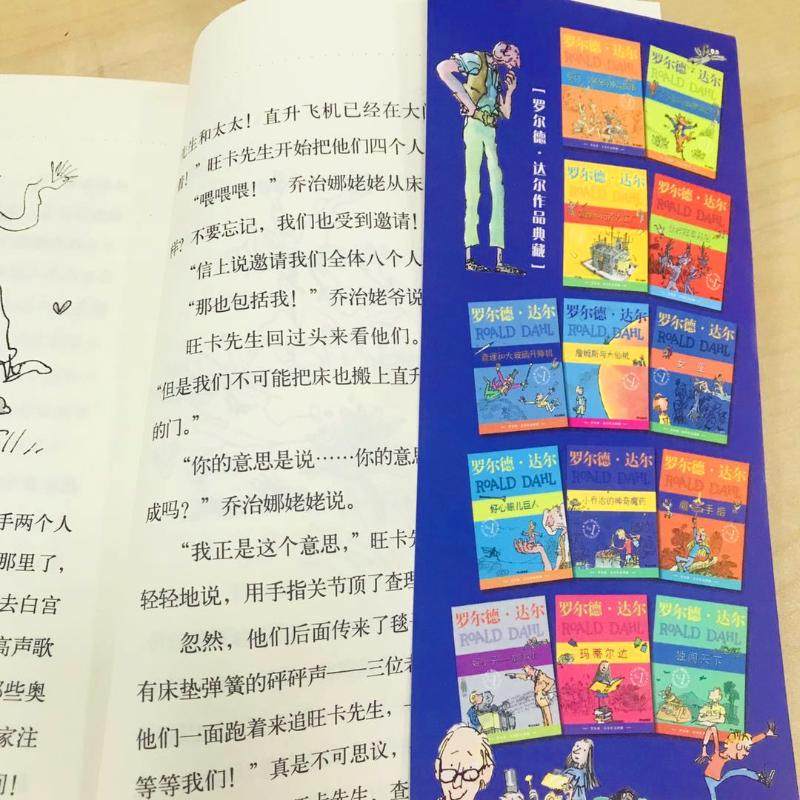 手两个人
那里了，
去白宫
高声歌
那些奥
家注
间！
先生和太太！直升飞机已经在大门
啦！”旺卡先生开始把他们四个人
“喂喂喂！”乔治娜姥姥从床
样？不要忘记，我们也受到邀请！
“信上说邀请我们全体八个人
“那也包括我！”乔治姥爷说
旺卡先生回过头来看他们。
“但是我们不可能把床也搬上直升
的门。”
“你的意思是说……你的意思
成吗？”乔治娜姥姥说。
“我正是这个意思，”旺卡
轻轻地说，用手指关节顶了查理
忽然，他们后面传来了毯
有床垫弹簧的砰砰声——三位老
他们一面跑着来追旺卡先生，一
等等我们！”真是不可思议，
先生，查
［罗尔德·达尔作品典藏］
罗尔德·达尔
ROALD DAHL
罗尔德·达尔
ROALD DAHL
罗尔德·达尔
ROALD DAHL
罗尔德·达尔
ROALD DAHL
罗尔德·达尔
ROALD DAHL
查理和大玻璃升降机
罗尔德·达尔
ROALD DAHL
詹姆斯与大仙桃
罗尔德·达尔
ROALD DAHL
女巫
罗尔德·达尔
ROALD DAHL
好心眼儿巨人
罗尔德·达尔
ROALD DAHL
小乔治的神奇魔药
罗尔德·达尔
ROALD DAHL
魔法手指
罗尔德·达尔
ROALD DAHL
罗尔德·达尔
ROALD DAHL
玛蒂尔达
罗尔德·达尔
ROALD DAHL
独闯天下